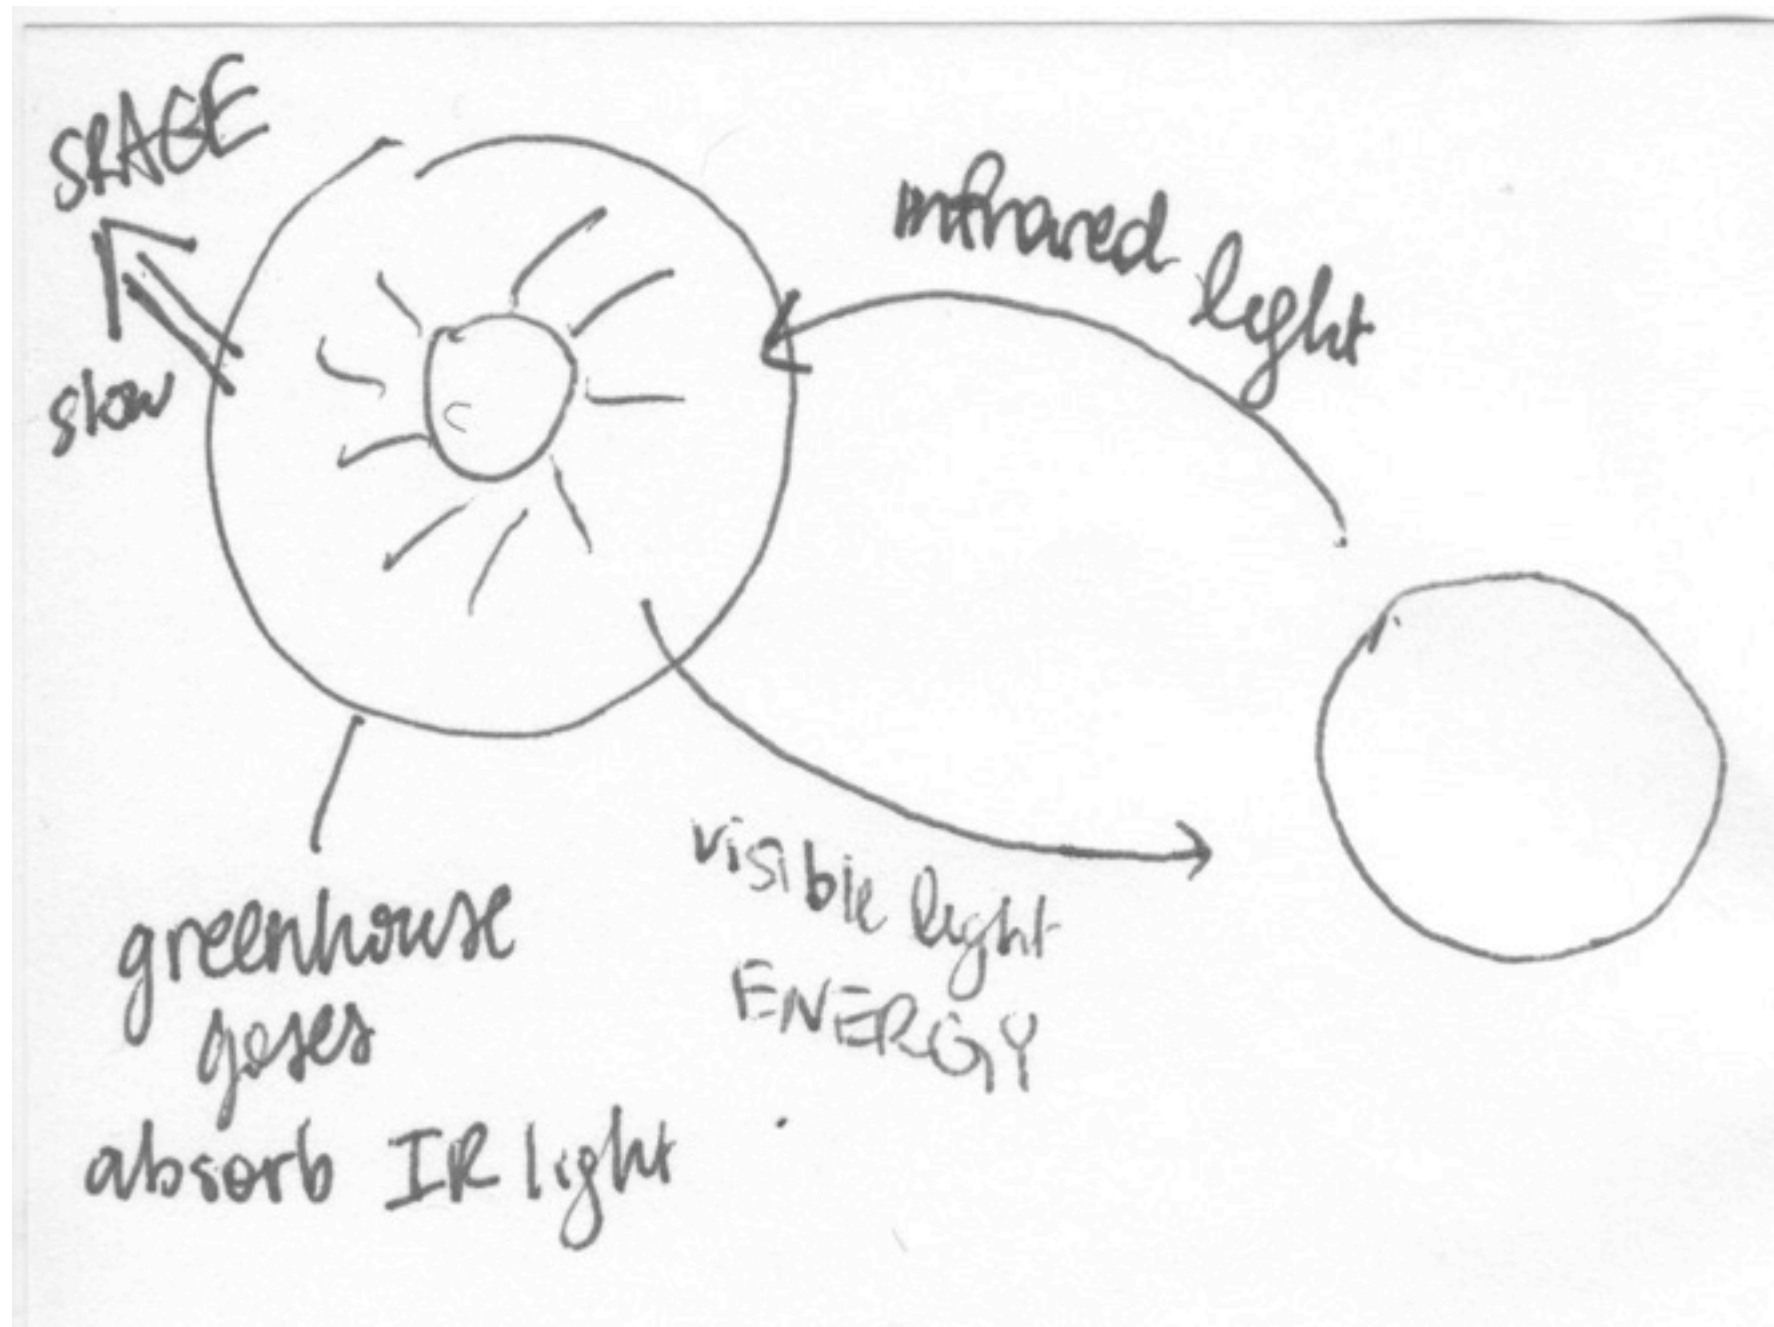 SRAGE
slow
infrared
light
visible light
ENERGY
greenhouse
gases
absorb IR light